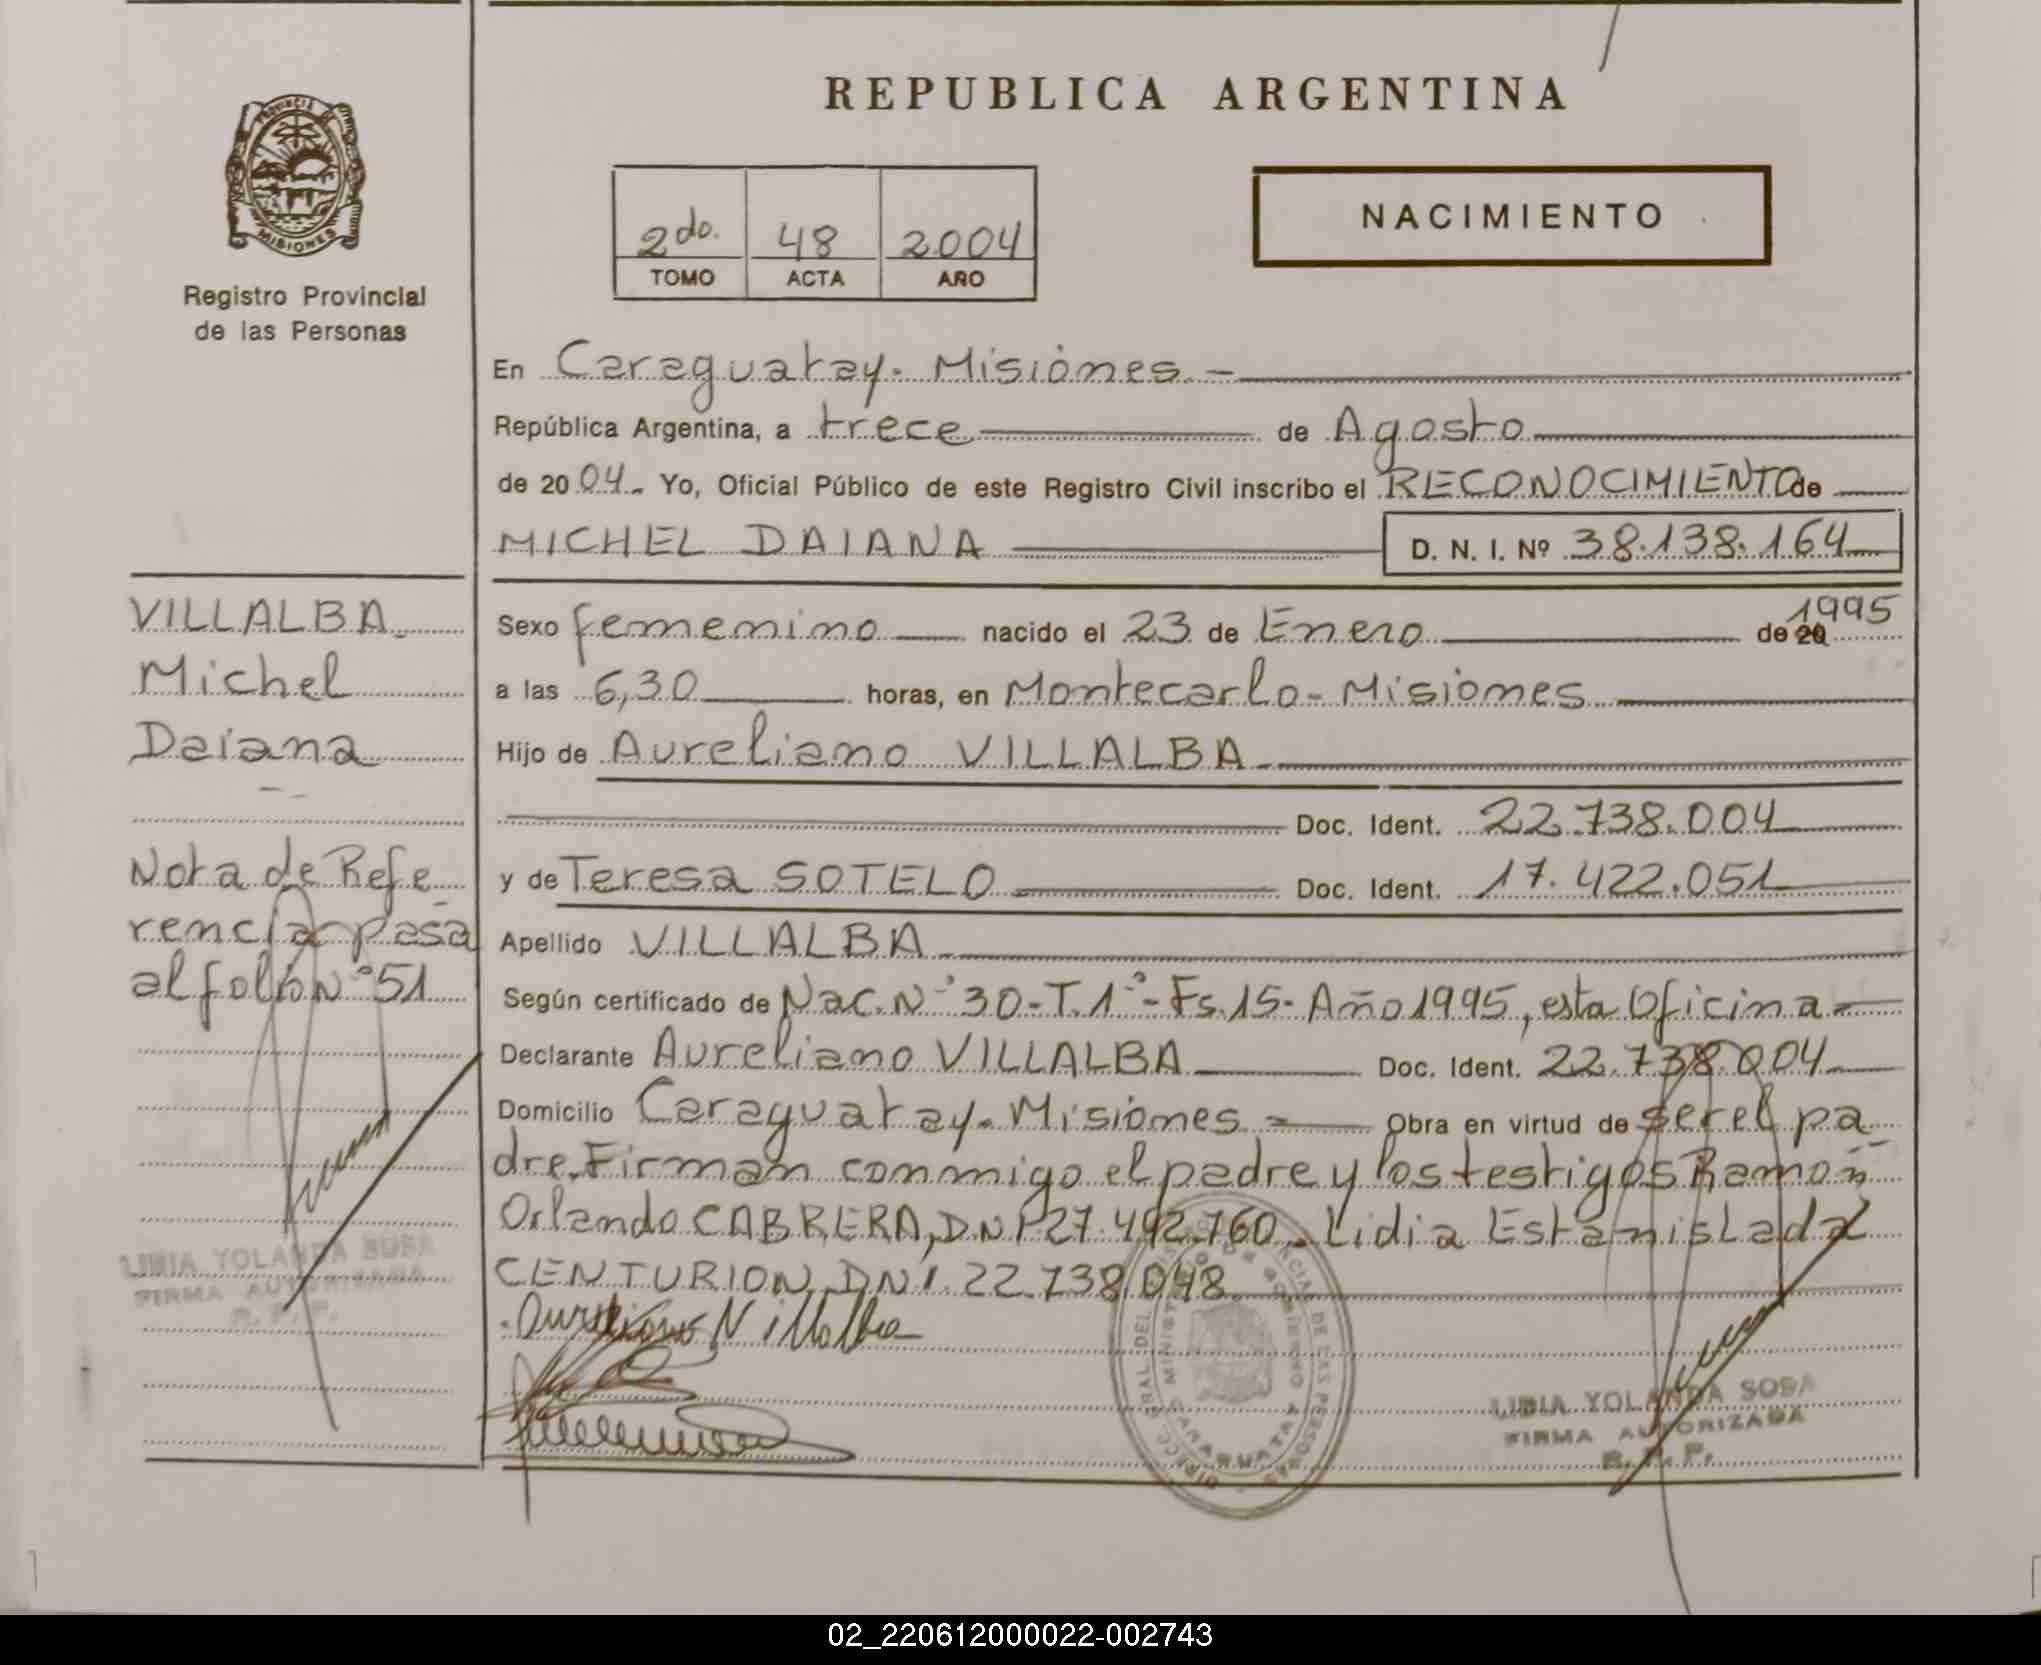 REPUBLICA ARGENTINA
PROVINCIA DE
MISIONES
Registro Provincial
de las Personas
2do. 48 2004
TOMO ACTA AÑO
NACIMIENTO
En Caraguatay. Misiones.-
República Argentina, a trece de Agosto
de 2004.- Yo, Oficial Público de este Registro Civil inscribo el RECONOCIMIENTO de
MICHEL DAIANA D. N. I. Nº 38.138.164
Sexo femenino nacido el 23 de Enero de 20 1995
a las 6,30 horas, en Montecarlo-Misiones
Hijo de Aureliano VILLALBA
Doc. Ident. 22.738.004
y de Teresa SOTELO Doc. Ident. 17.422.051
Apellido VILLALBA
Según certificado de Nac.N°30-T.1°-Fs.15-Año1995, esta Oficina=
Declarante Aureliano VILLALBA Doc. Ident. 22.738.004
Domicilio Caraguatay-Misiones= Obra en virtud de ser el pa
dre.Firman conmigo el padre y los testigos Ramón
Orlando CABRERA, DNI 27.492.760.- Lidia Estanislada
CENTURION, DNI. 22.738.048.
Aureliano Villalba
LIDIA YOLANDA SOSA
FIRMA AUTORIZADA
R. P. P.
VILLALBA.
Michel
Daiana
Nota de Refe
rencia pasa
al folio N°51
LIDIA YOLANDA SOSA
FIRMA AUTORIZADA
R. P. P.
02_220612000022-002743